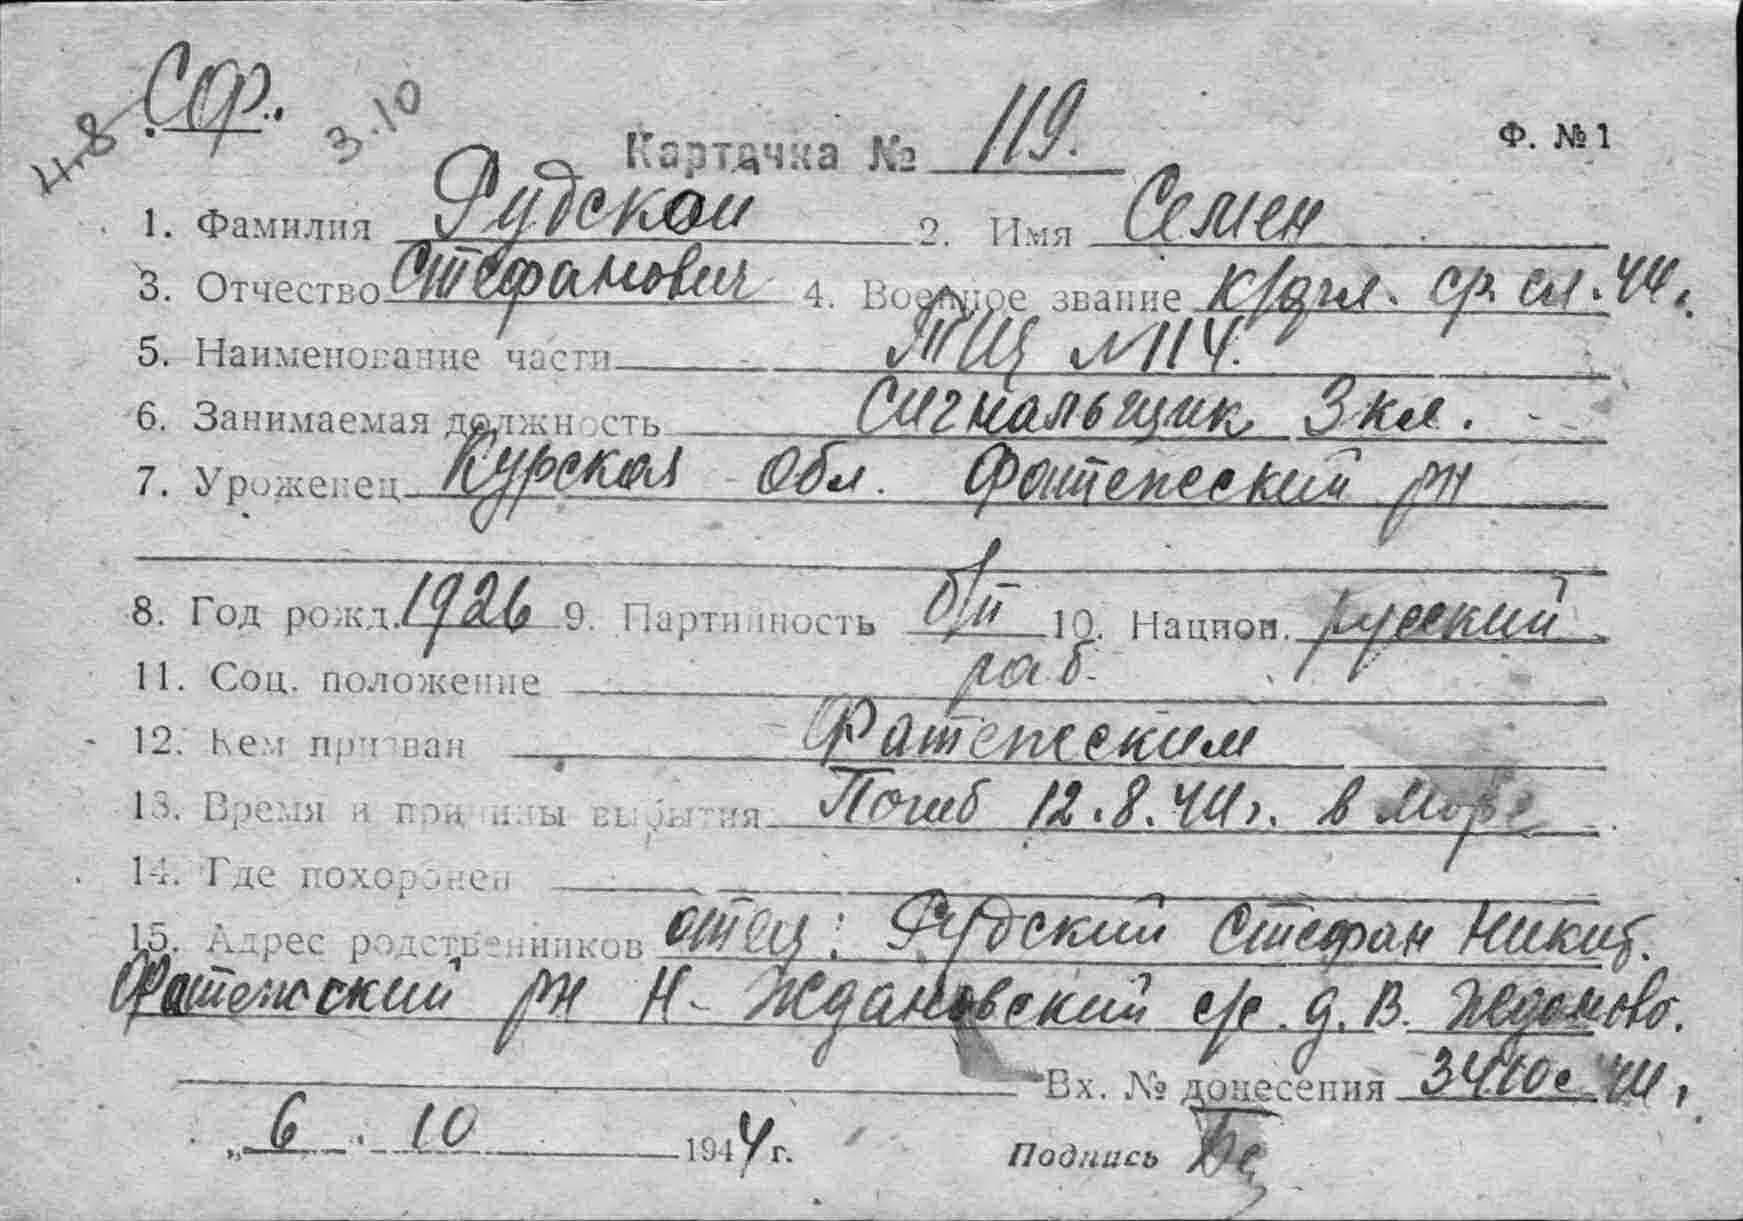 СФ.
4.8
3.10
Карточка № 119. Ф. №1
1. Фамилия Рудской 2. Имя Семен
3. Отчество Стефанович 4. Военное звание к/фл. ср. сл. 44.
5. Наименование части ТЩ №114.
6. Занимаемая должность Сигнальщик 3 кл.
7. Уроженец Курская обл. Фатежеский рн
8. Год рожд. 1926 9. Партийность б/п 10. Национ. русский
11. Соц. положение раб.
12. Кем призван Фатежеским
13. Время и причины выбытия Погиб 12.8.44г. в море
14. Где похоронен
15. Адрес родственников отец: Рудский Стефан Никит.
Фатежский рн Н-Ждановский с/с. д. В. Жданово.
Вх. № донесения 3410с 44.
„ 6 . 10 1944 г. Подпись